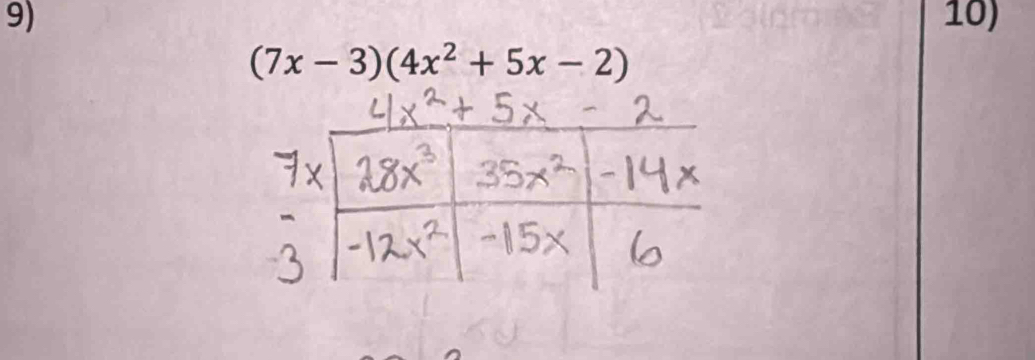 9)
10)
(7x − 3)(4x² + 5x − 2)
4x² + 5x - 2
7x 28x³ 35x² -14x
-3 -12x² -15x 6